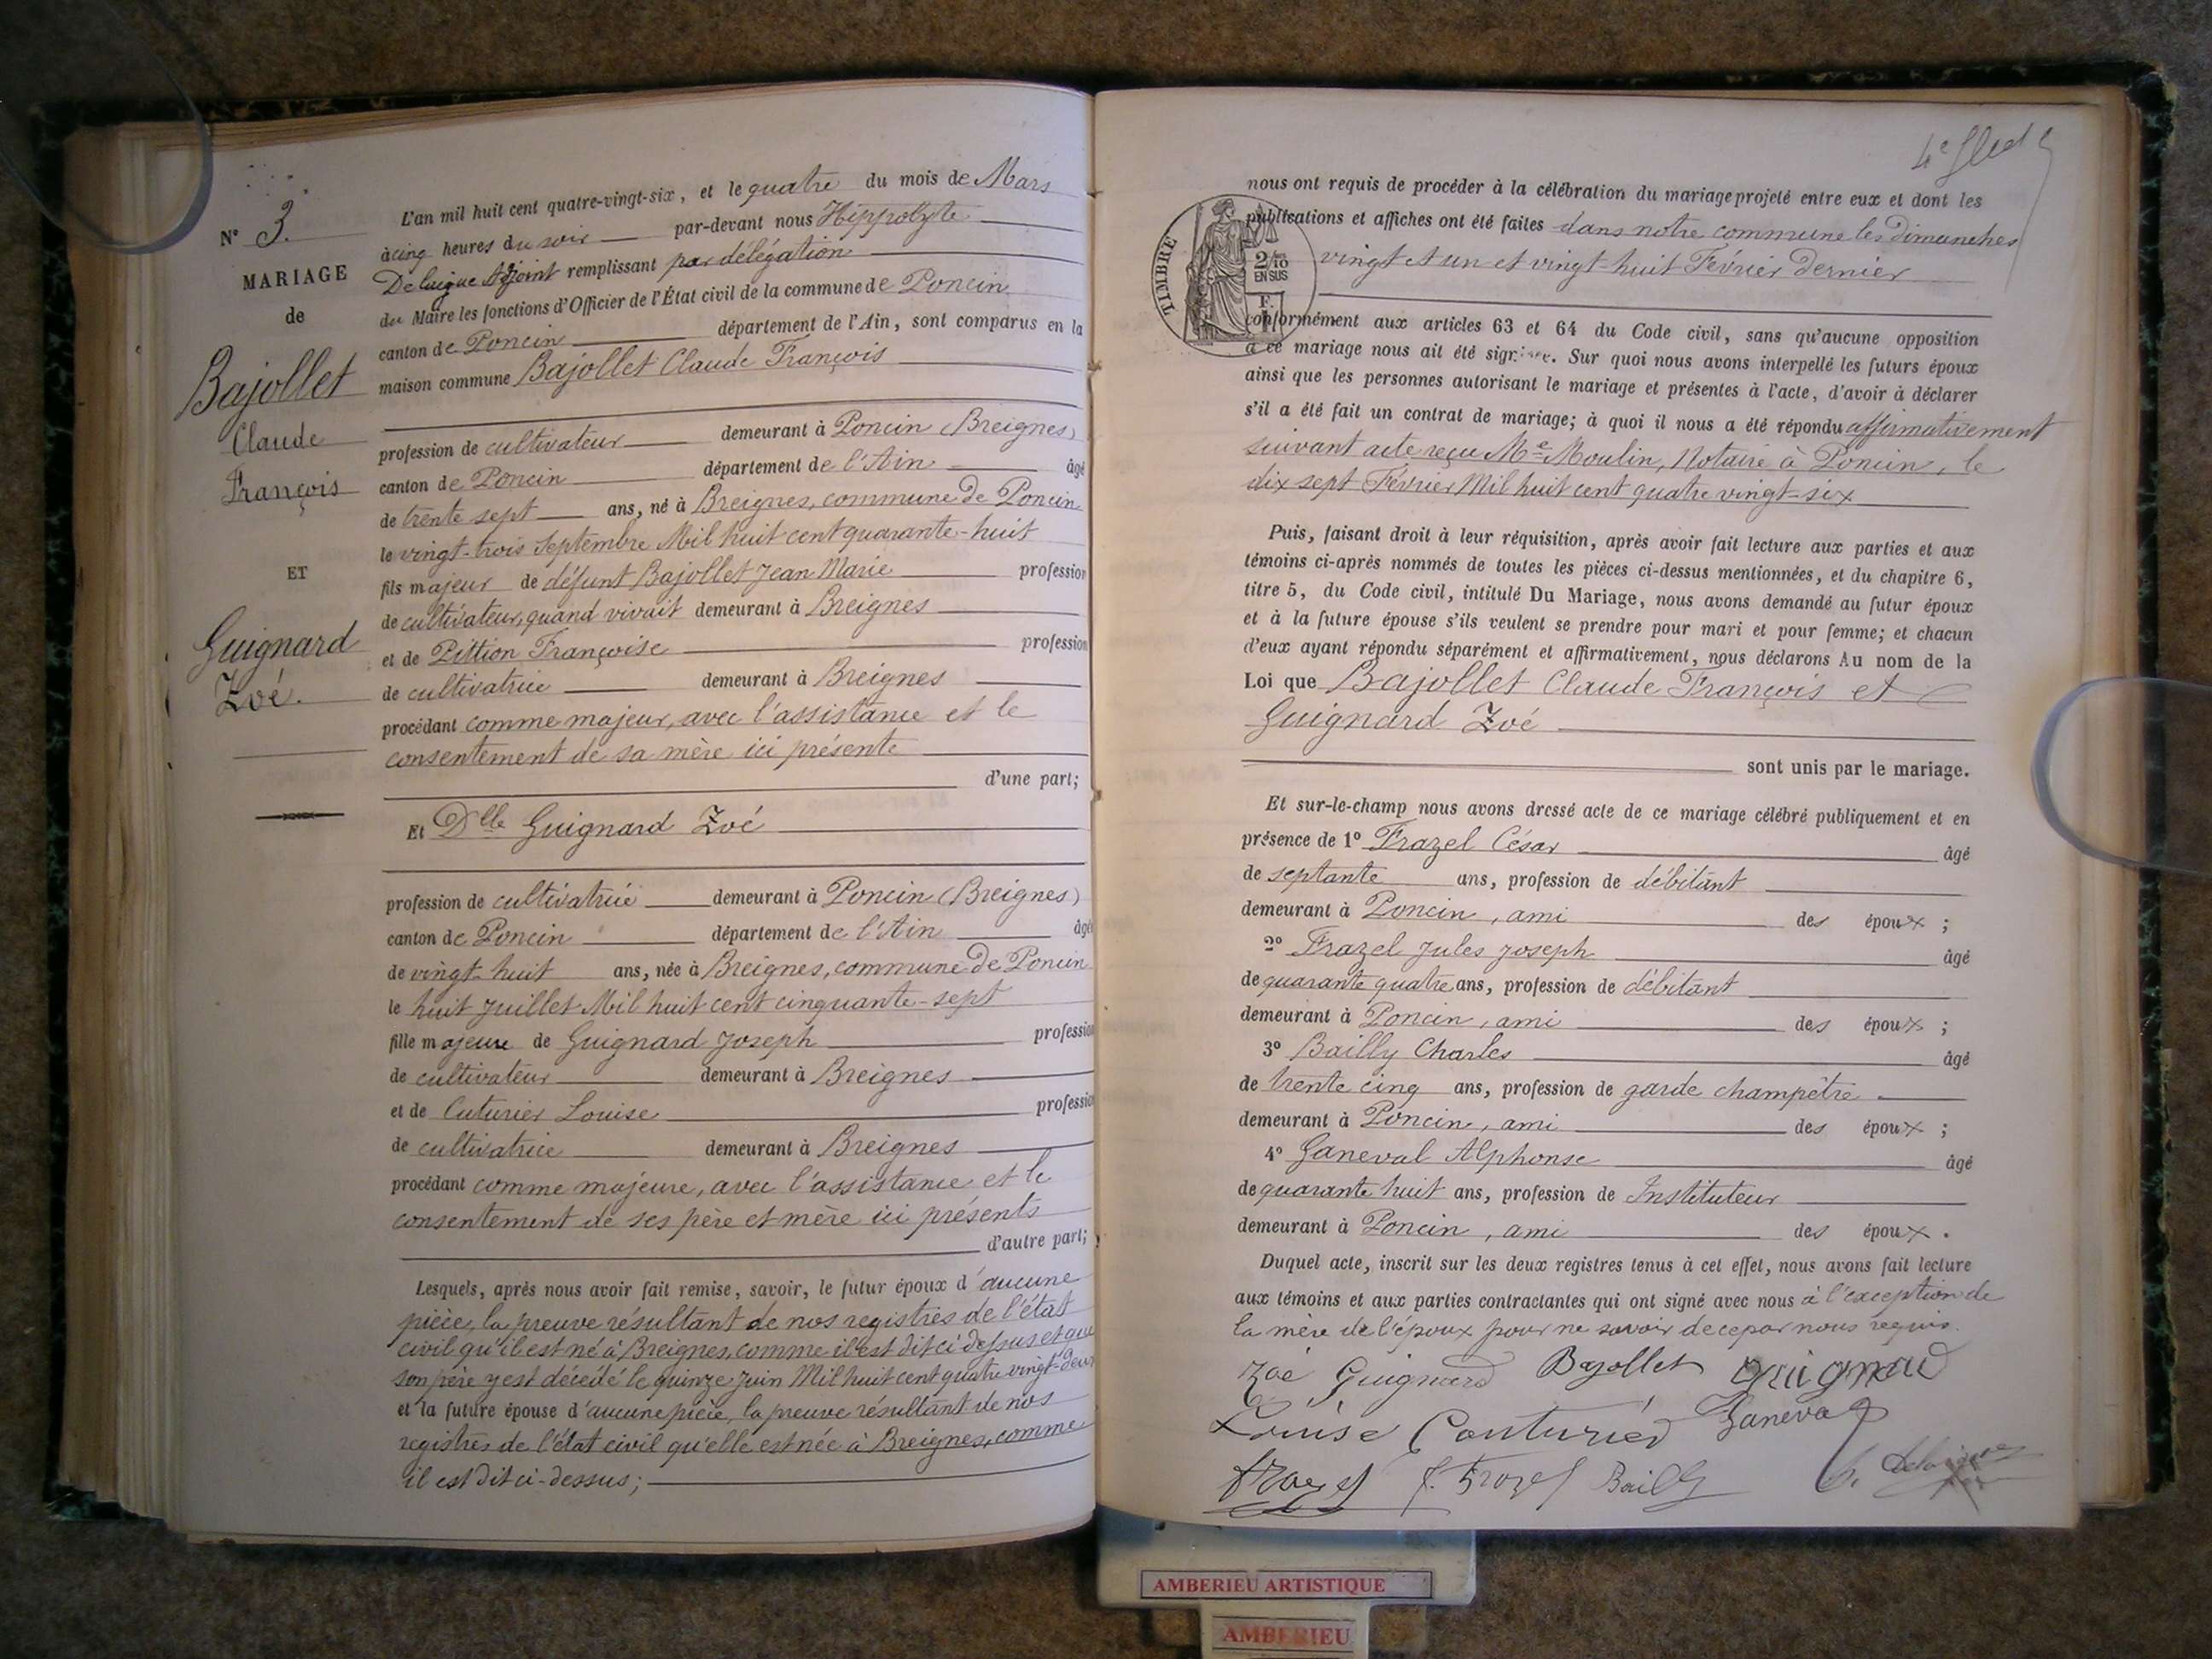 N° 3.
MARIAGE
de
Bajollet
Claude
François
ET
Guignard
Zoé.
L'an mil huit cent quatre-vingt-six, et le quatre du mois de Mars
à cinq heures du soir par-devant nous Hippolyte
Delaigue Adjoint remplissant par délégation
du Maire les fonctions d'Officier de l'État civil de la commune de Poncin
canton de Poncin département de l'Ain, sont comparus en la
maison commune Bajollet Claude François
profession de cultivateur demeurant à Poncin (Breignes)
canton de Poncin département de l'Ain âgé
de trente sept ans, né à Breignes, commune de Poncin
le vingt-trois Septembre Mil huit cent quarante-huit
fils majeur de défunt Bajollet Jean Marie profession
de cultivateur, quand vivait demeurant à Breignes
et de Pittion Françoise profession
de cultivatrice demeurant à Breignes
procédant comme majeur, avec l'assistance et le
consentement de sa mère ici présente
d'une part;
Et Dlle Guignard Zoé
profession de cultivatrice demeurant à Poncin (Breignes)
canton de Poncin département de l'Ain âgé
de vingt-huit ans, née à Breignes, commune de Poncin
le huit Juillet Mil huit cent cinquante-sept
fille majeure de Guignard Joseph profession
de cultivateur demeurant à Breignes
et de Cuturier Louise profession
de cultivatrice demeurant à Breignes
procédant comme majeure, avec l'assistance et le
consentement de ses père et mère ici présents
d'autre part;
Lesquels, après nous avoir fait remise, savoir, le futur époux d'aucune
pièce, la preuve résultant de nos registres de l'état
civil qu'il est né à Breignes, comme il est dit ci-dessus et que
son père y est décédé le quinze Juin Mil huit cent quatre vingt-deux
et la future épouse d'aucune pièce, la preuve résultant de nos
registres de l'état civil qu'elle est née à Breignes, comme
il est dit ci-dessus;
4e
TIMBRE
2/10
EN SUS
F.
nous ont requis de procéder à la célébration du mariage projeté entre eux et dont les
publications et affiches ont été faites dans notre commune les Dimanches
vingt et un et vingt-huit Février dernier
conformément aux articles 63 et 64 du Code civil, sans qu'aucune opposition
à ce mariage nous ait été signifiée. Sur quoi nous avons interpellé les futurs époux
ainsi que les personnes autorisant le mariage et présentes à l'acte, d'avoir à déclarer
s'il a été fait un contrat de mariage; à quoi il nous a été répondu affirmativement
suivant acte reçu Me Moulin, Notaire à Poncin, le
dix sept Février Mil huit cent quatre vingt-six
Puis, faisant droit à leur réquisition, après avoir fait lecture aux parties et aux
témoins ci-après nommés de toutes les pièces ci-dessus mentionnées, et du chapitre 6,
titre 5, du Code civil, intitulé Du Mariage, nous avons demandé au futur époux
et à la future épouse s'ils veulent se prendre pour mari et pour femme; et chacun
d'eux ayant répondu séparément et affirmativement, nous déclarons Au nom de la
Loi que Bajollet Claude François et
Guignard Zoé
sont unis par le mariage.
Et sur-le-champ nous avons dressé acte de ce mariage célébré publiquement et en
présence de 1° Frazel César âgé
de septante ans, profession de débitant
demeurant à Poncin, ami des époux ;
2° Frazel Jules Joseph âgé
de quarante quatre ans, profession de débitant
demeurant à Poncin, ami des époux ;
3° Bailly Charles âgé
de trente cinq ans, profession de garde champêtre
demeurant à Poncin, ami des époux ;
4° Ganeval Alphonse âgé
de quarante huit ans, profession de Instituteur
demeurant à Poncin, ami des époux.
Duquel acte, inscrit sur les deux registres tenus à cet effet, nous avons fait lecture
aux témoins et aux parties contractantes qui ont signé avec nous à l'exception de
la mère de l'époux pour ne savoir de ce par nous requis.
Zoé Guignard Bajollet Guignard
Louise Couturier Ganeval
Frazel J. Frazel Bailly Delaigue
AMBERIEU ARTISTIQUE
AMBERIEU